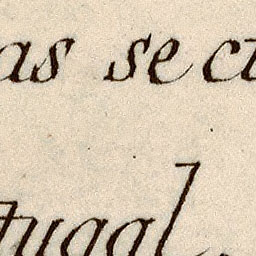 as se ct
tugal.